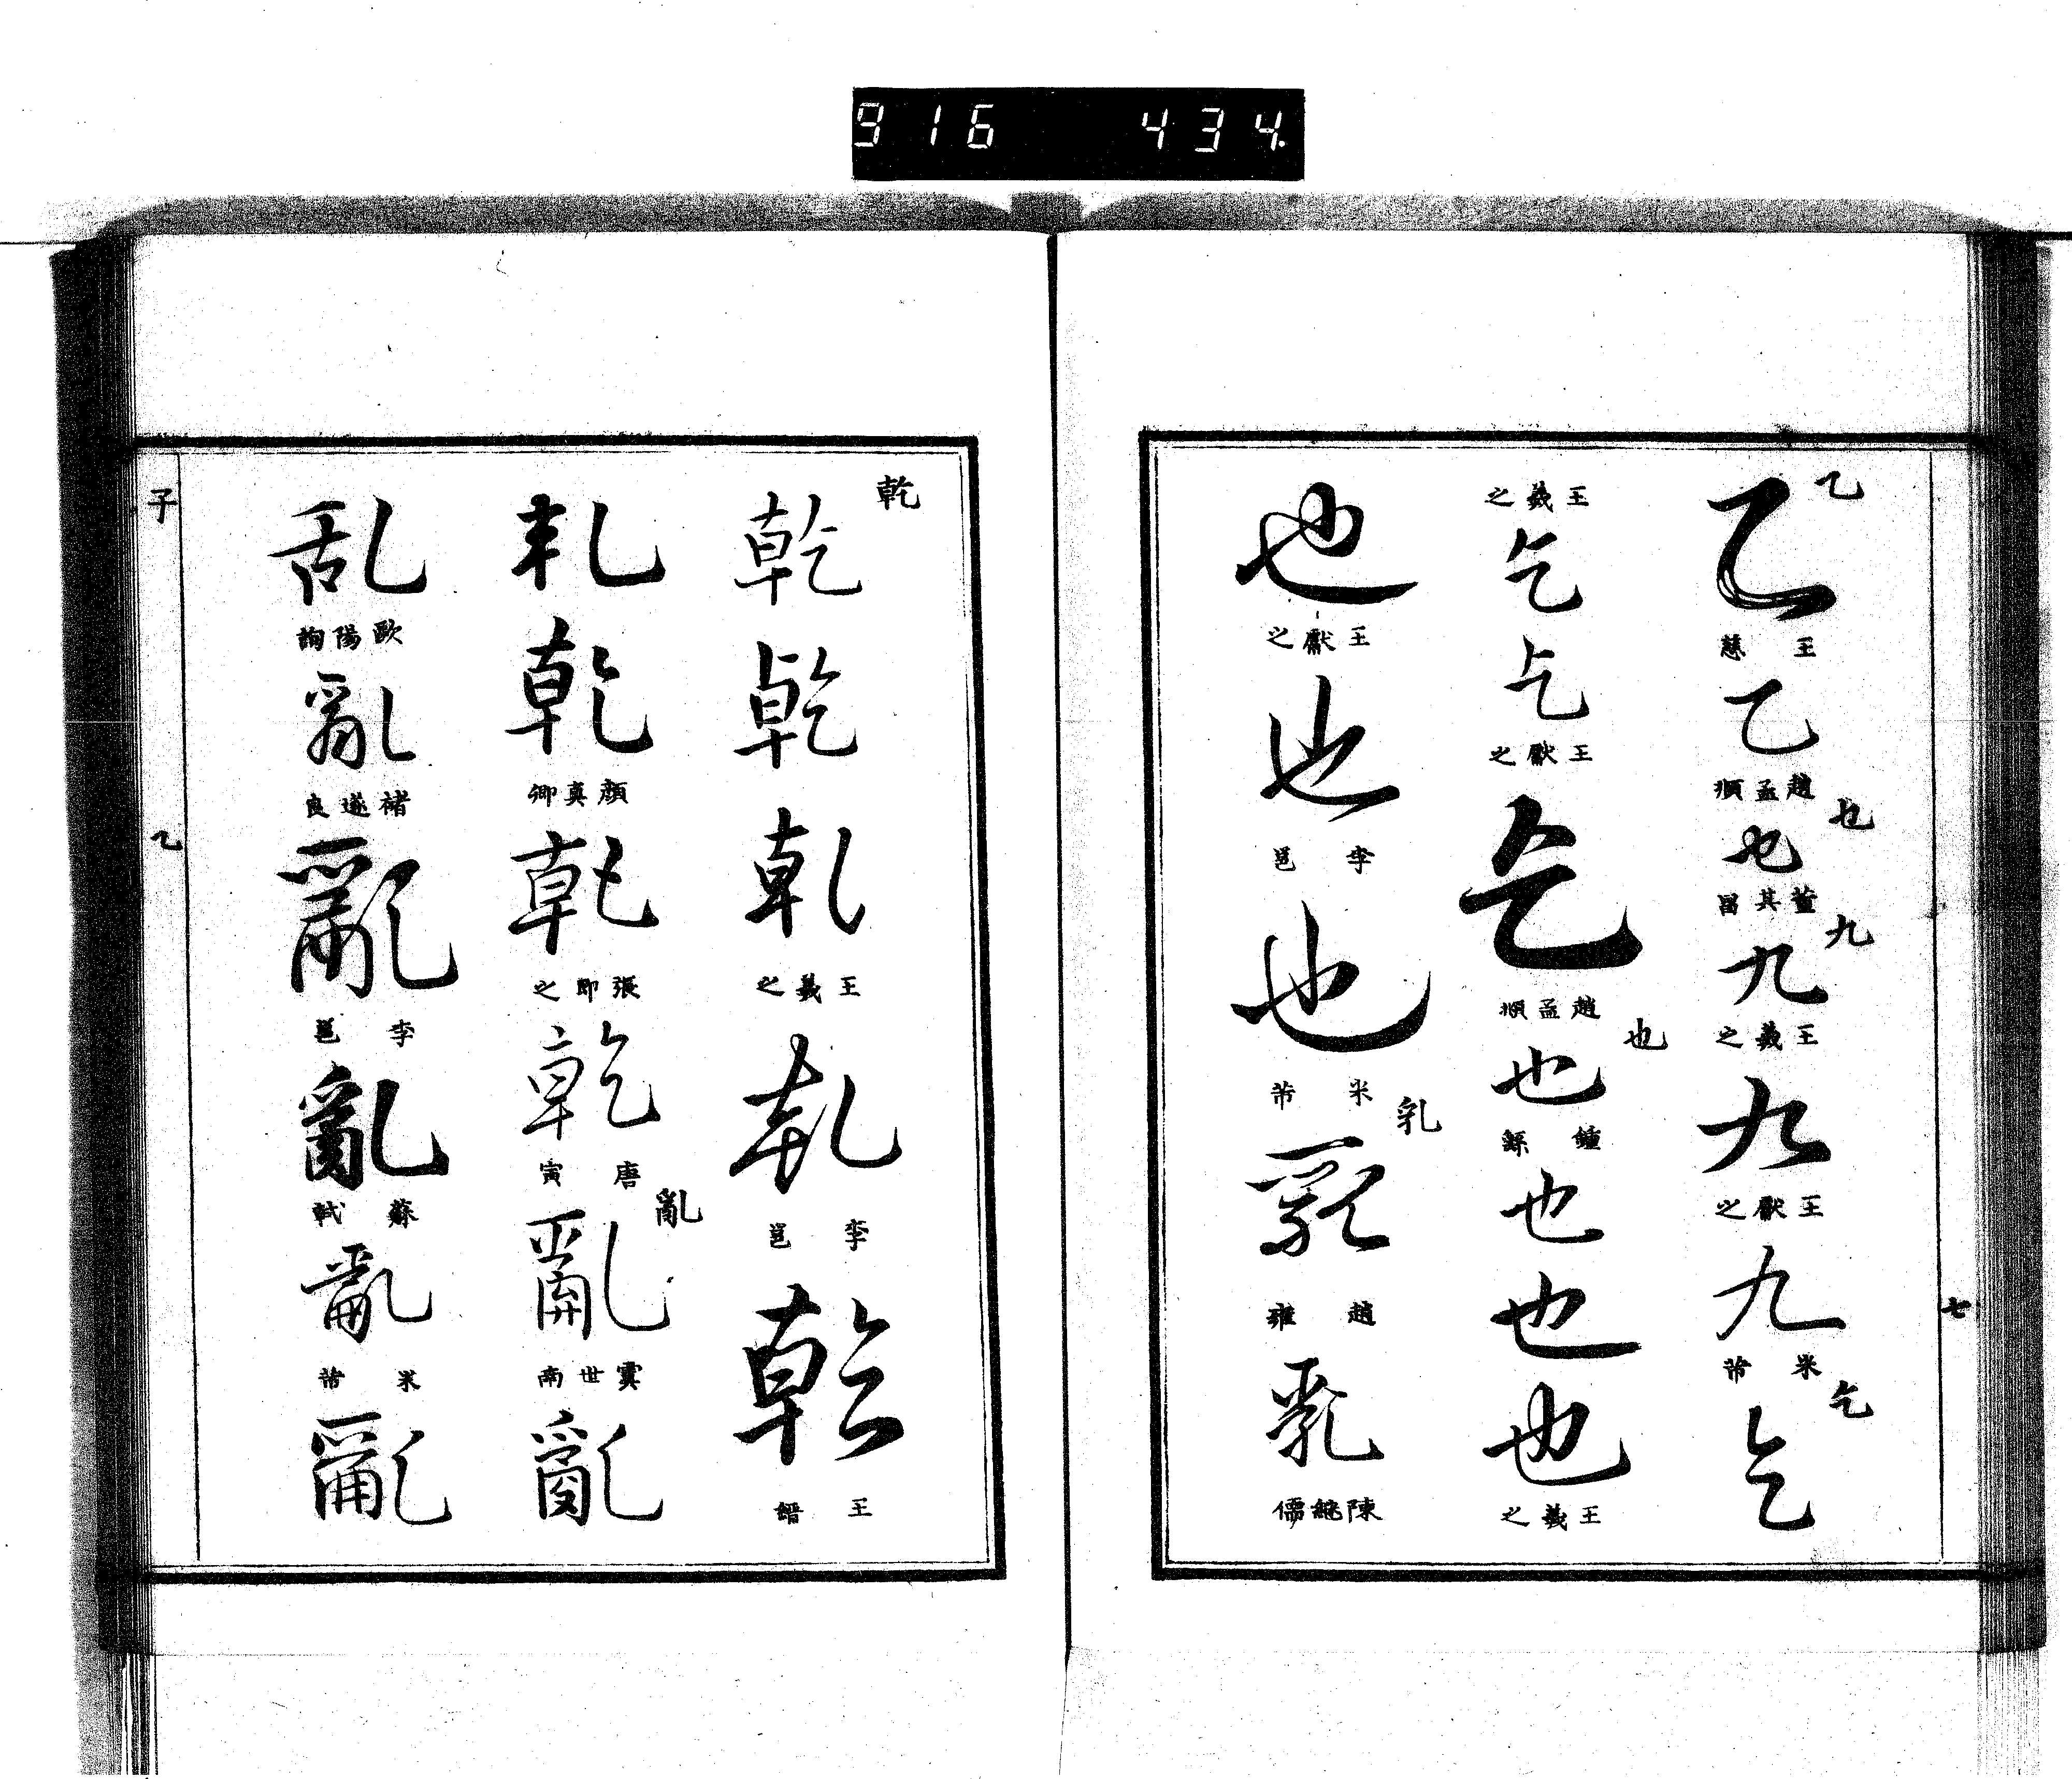 916 434.
乙
乙
王慈
乙
趙孟頫
也
也
董其昌
九
九
王羲之
九
王獻之
九
米芾
乞
乞
王羲之
乞
乞
王獻之
乞
趙孟頫
也
也
鍾繇
也
也
也
王羲之
也
王獻之
也
李邕
也
米芾
乳
乳
趙雍
乳
陳繼儒
七
乾
乾
乾
乾
王羲之
乾
李邕
乾
王縉
乾
乾
顏真卿
乾
張即之
乾
唐寅
亂
亂
虞世南
亂
乱
歐陽詢
亂
褚遂良
亂
李邕
亂
蘇軾
亂
米芾
亂
子
乙